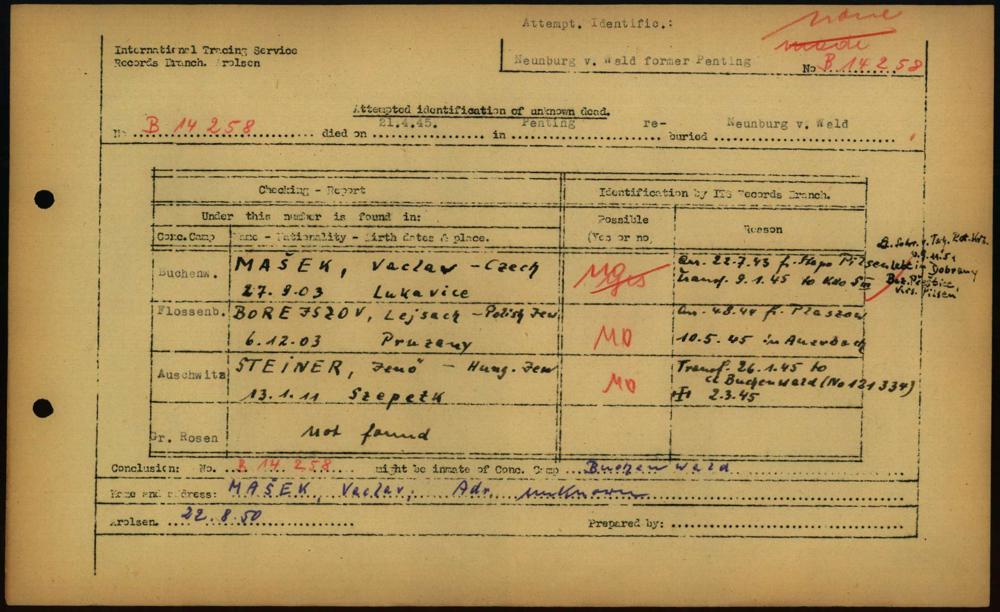 Attempt. Identific.:
none
made
International Tracing Service
Records Branch. Arolsen
Neunburg v. Wald former Penting
No B 14 2 58
Attempted identification of unknown dead.
No B 14 258 died on 21.4.45. in Penting re-buried Neunburg v. Wald
Checking - Report
Identification by ITS Records Branch.
Under this number is found in:
Possible
(Yes or no)
Reason
Conc.Camp Name - Nationality - Birth dates & place.
Buchenw. MAŠEK, Vaclav - Czech
27.9.03 Lukavice
an. 22.7.43 f. Stapo Pilsen
Transf. 9.1.45 to Kdo
Dobrany
Pilsen
Flossenb. BOREJSZOV, Lejsach - Polish Jew
6.12.03 Pruzany
no
an. 4.8.44 f. Plaszow
10.5.45 in Auerbach
Auschwitz STEINER, Jenö - Hung. Jew
13.1.11
no
Transf. 26.1.45 to
cl Buchenwald (No 121 334)
2.3.45
Gr. Rosen Not found
Conclusion: No. B 14 258 might be inmate of Conc. Camp Buchenwald
Name and address: MAŠEK, Vaclav, Adr. unknown
Arolsen. 22.8.50
Prepared by: